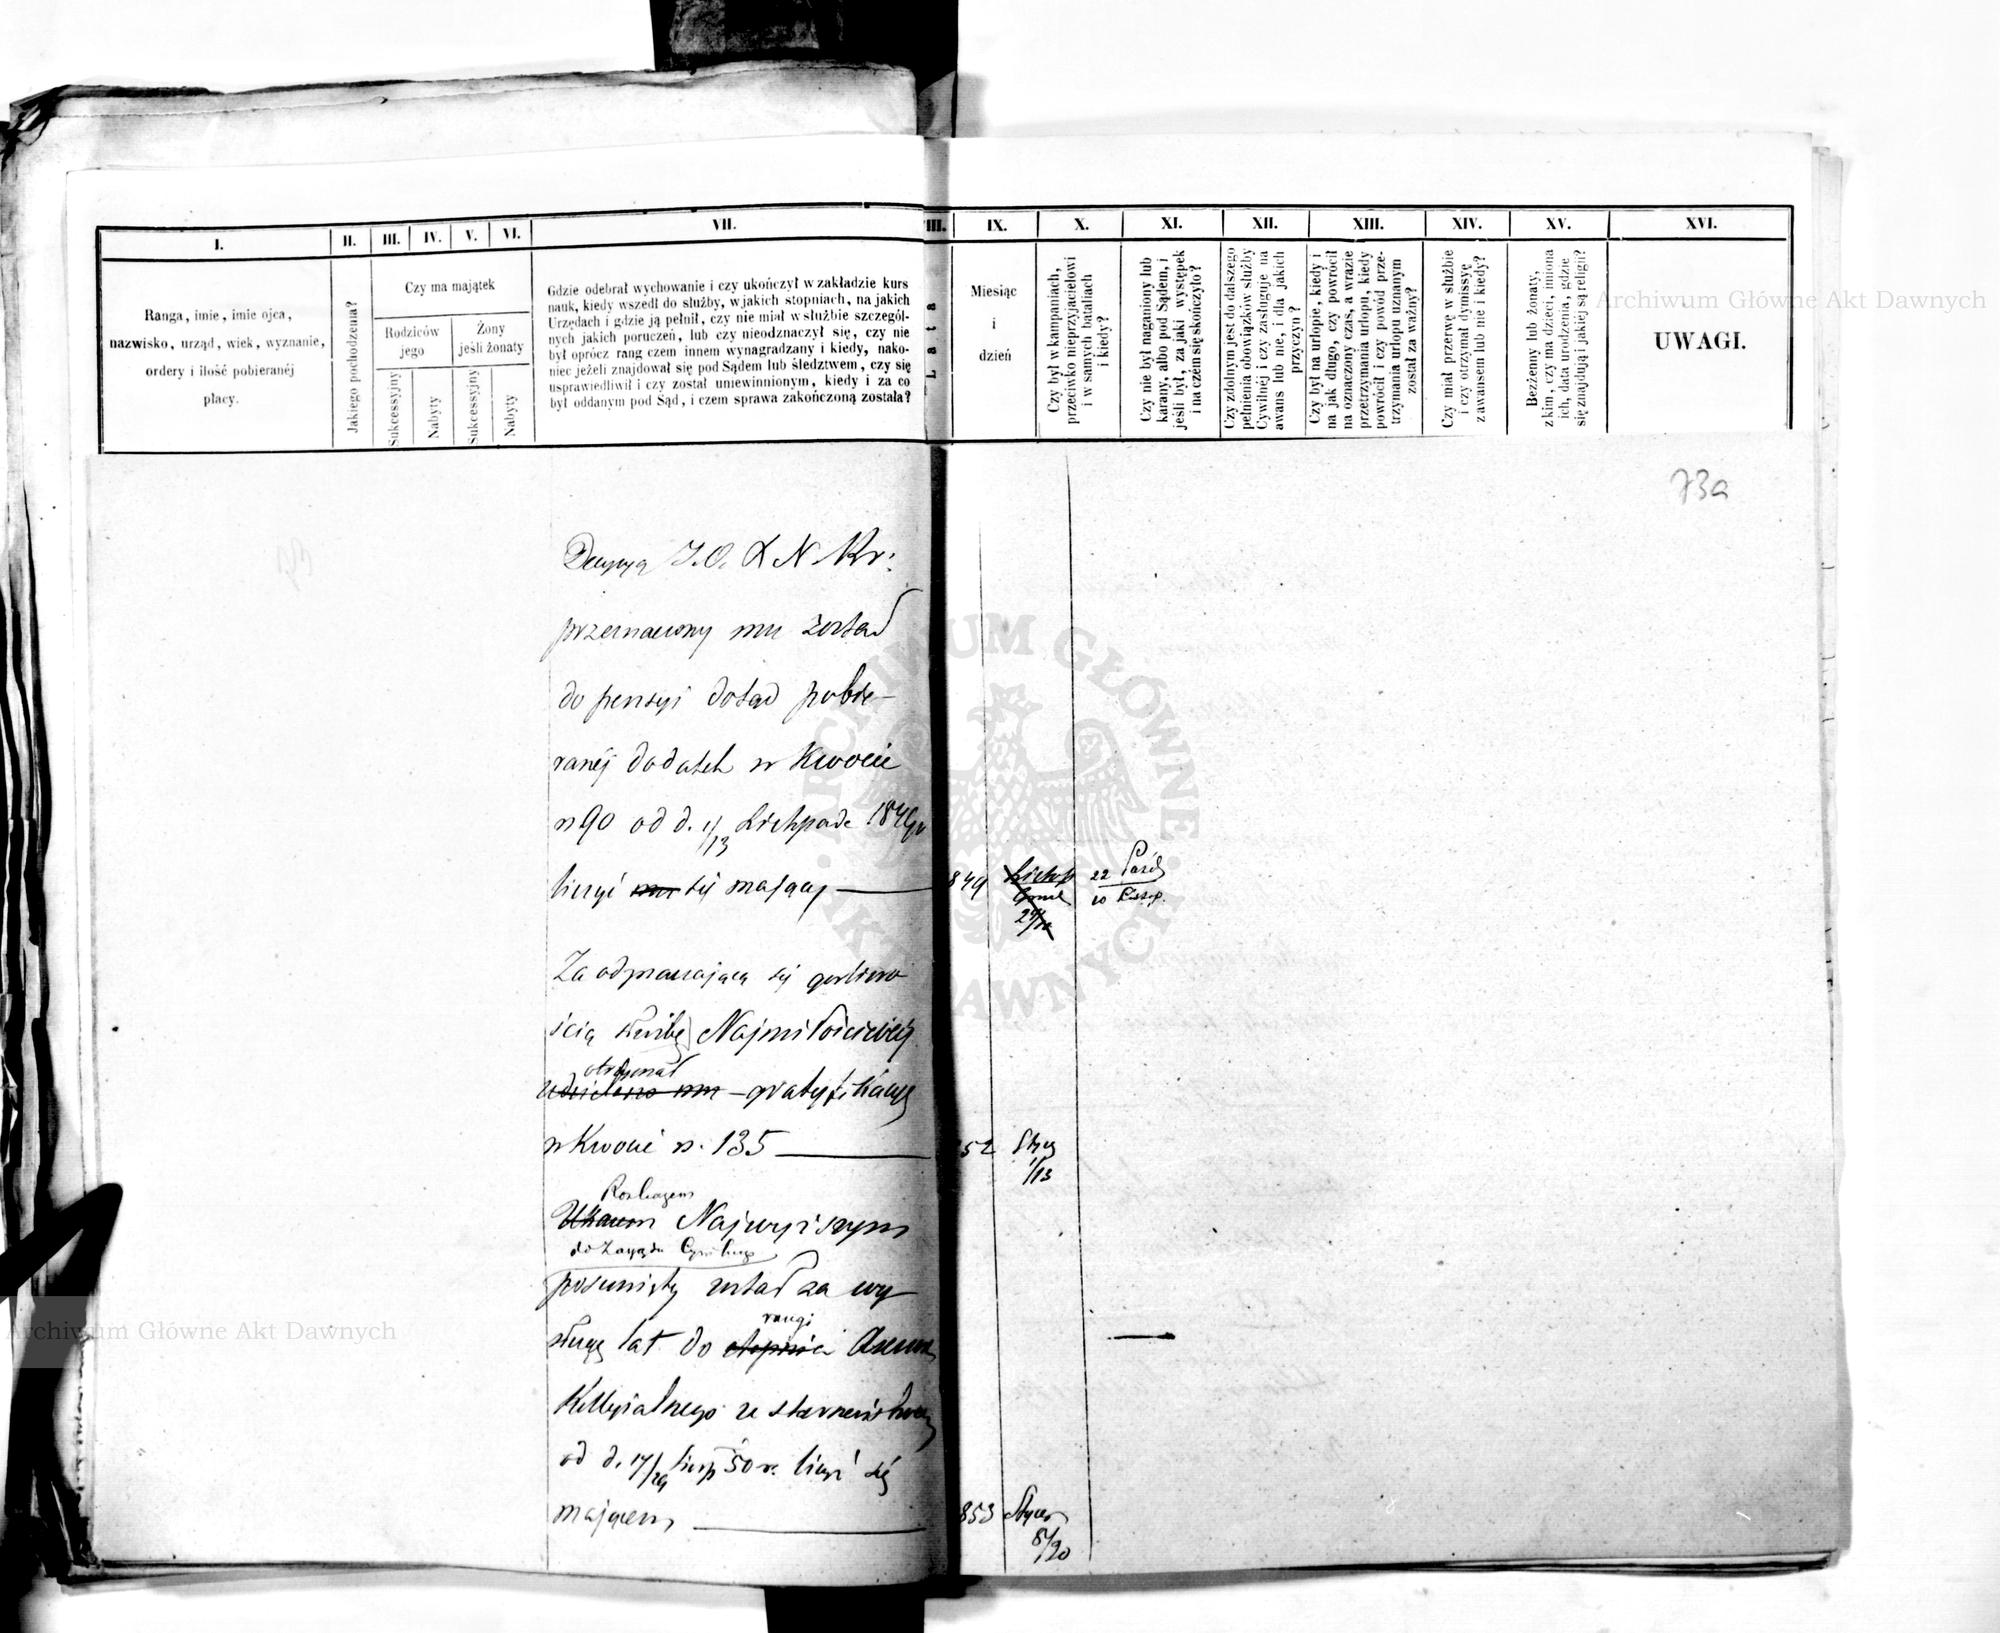 I.
II.
III.
IV.
V.
VI.
VII.
VIII.
IX.
X.
XI.
XII.
XIII.
XIV.
XV.
XVI.
Ranga, imie, imie ojca,
nazwisko, urząd, wiek, wyznanie,
ordery i ilość pobieranéj
płacy.
Jakiego pochodzenia?
Czy ma majątek
Rodziców
jego
Żony
jeśli żonaty
Sukcessyjny
Nabyty
Sukcessyjny
Nabyty
Gdzie odebrał wychowanie i czy ukończył w zakładzie kurs
nauk, kiedy wszedł do służby, w jakich stopniach, na jakich
Urzędach i gdzie ją pełnił, czy nie miał w służbie szczegól-
nych jakich poruczeń, lub czy nieodznaczył się, czy nie
był oprócz rang czem innem wynagradzany i kiedy, nako-
niec jeżeli znajdował się pod Sądem lub śledztwem, czy się
usprawiedliwił i czy został uniewinnionym, kiedy i za co
był oddanym pod Sąd, i czem sprawa zakończoną została?
Lata
Miesiąc
i
dzień
Czy był w kampaniach,
przeciwko nieprzyjacielowi
i w samych bataliach
i kiedy?
Czy nie był naganiony lub
karany, albo pod Sądem, i
jeśli był, za jaki występek
i na czem się skończyło?
Czy zdolnym jest do dalszego
pełnienia obowiązków służby
Cywilnéj i czy zasługuje na
awans lub nie, i dla jakich
przyczyn?
Czy był na urlopie, kiedy i
na jak długo, czy powrócił
na oznaczony czas, a wrazie
przetrzymania urlopu, kiedy
powrócił i czy powód prze-
trzymania urlopu uznanym
został za ważny?
Czy miał przerwę w służbie
i czy otrzymał dymissyę
z awansem lub nie i kiedy?
Bezżenny lub żonaty,
z kim, czy ma dzieci, imiona
ich, data urodzenia, gdzie
się znajdują i jakiej są religii?
UWAGI.
73a
Decyzyą J.O. X N Kr:
przeznaczony mu został
do pensyi dotąd pobie-
ranéj dodatek w kwocie
rs 90 od d. 1/13 Listopada 1849 r
liczyć mu się mający
849 Listop 22 Paźd
10 Listop.
Za odznaczającą się gorliwo
ścią służbę Najmiłościwiéj
otrzymał
udzielono mu gratyfikacyę
w kwocie rs. 135
852 Stycz
1/13
Rozkazem
Ukazem Najwyższym
do Zarządu Cywilnego
posunięty został za wy
sługę lat do rangi
stopnia Assess
Kollegialnego ze starszeństwem
od d. 17/29 Sierp 50 r. liczyć się
mającem
853 Stycz
8/20
Archiwum Główne Akt Dawnych
Archiwum Główne Akt Dawnych
ARCHIWUM GŁÓWNE AKT DAWNYCH